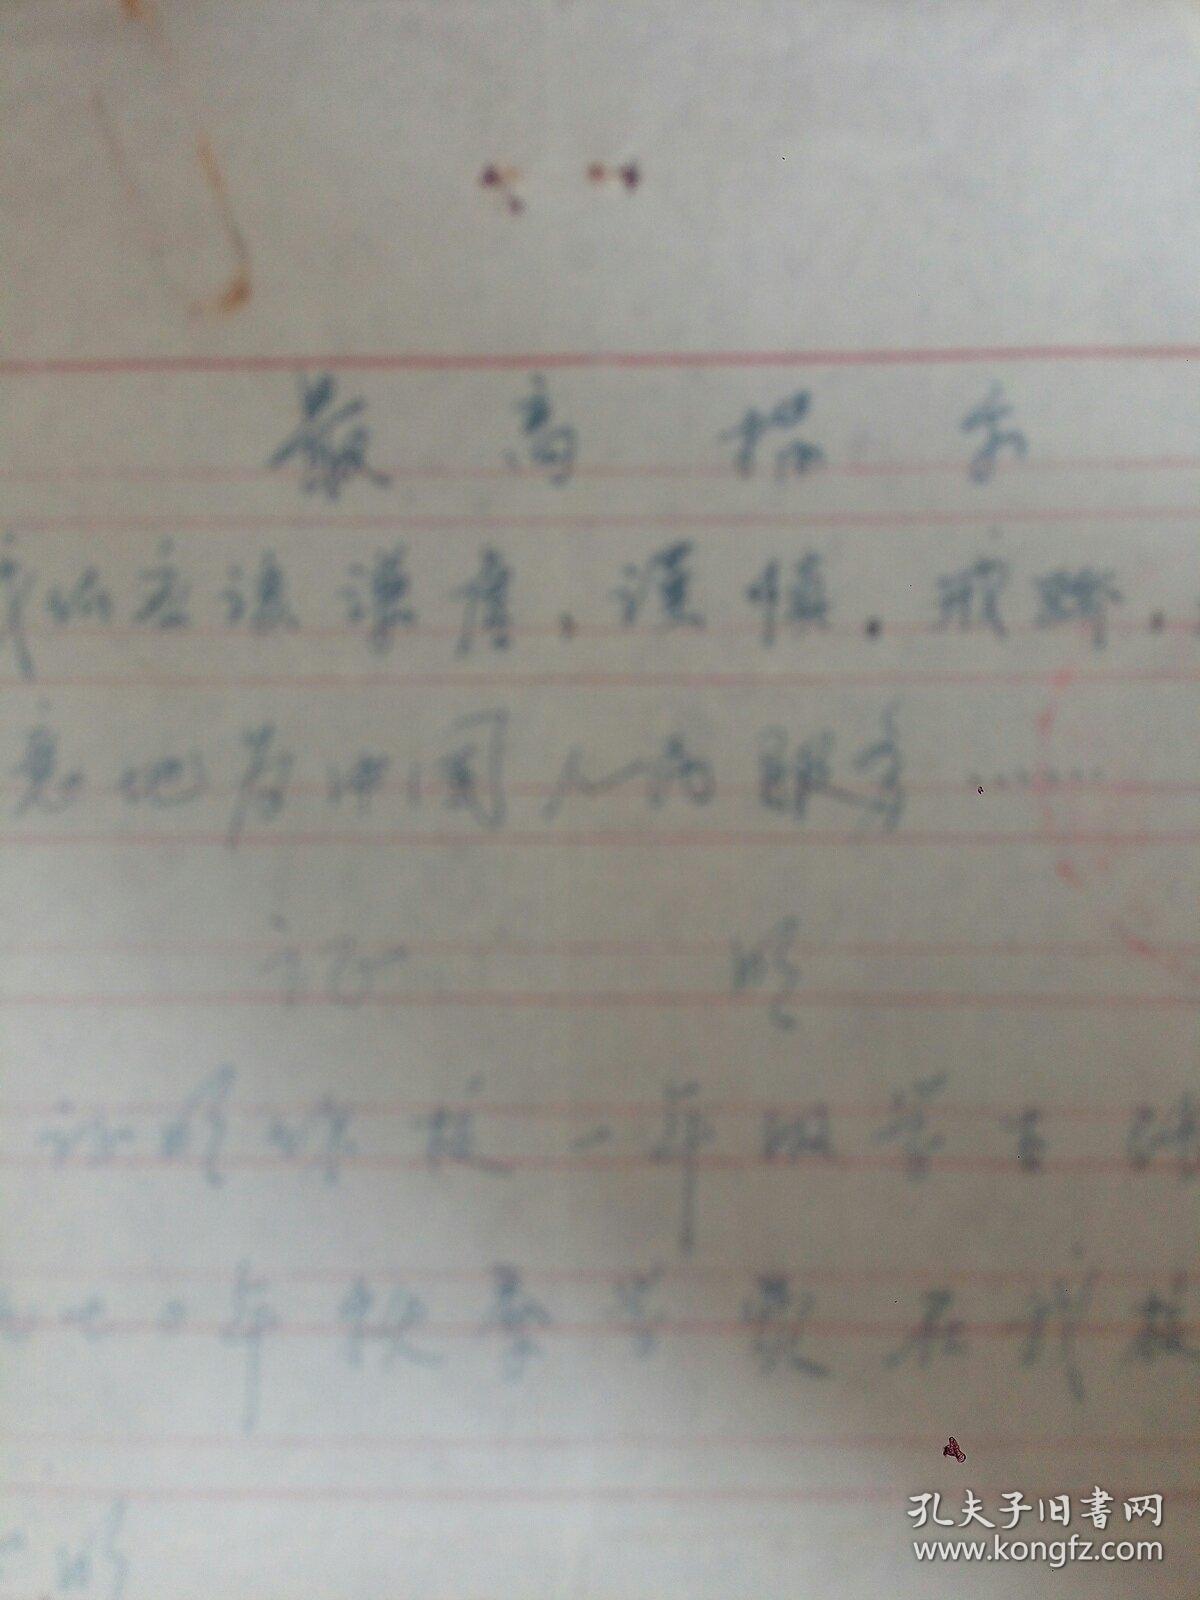 最高指示
我们应该谦虚，谨慎，戒骄，
意地为中国人民服务……
证明
证明你校一年级学生
七〇年秋季学费在我校
明
孔夫子旧书网
www.kongfz.com